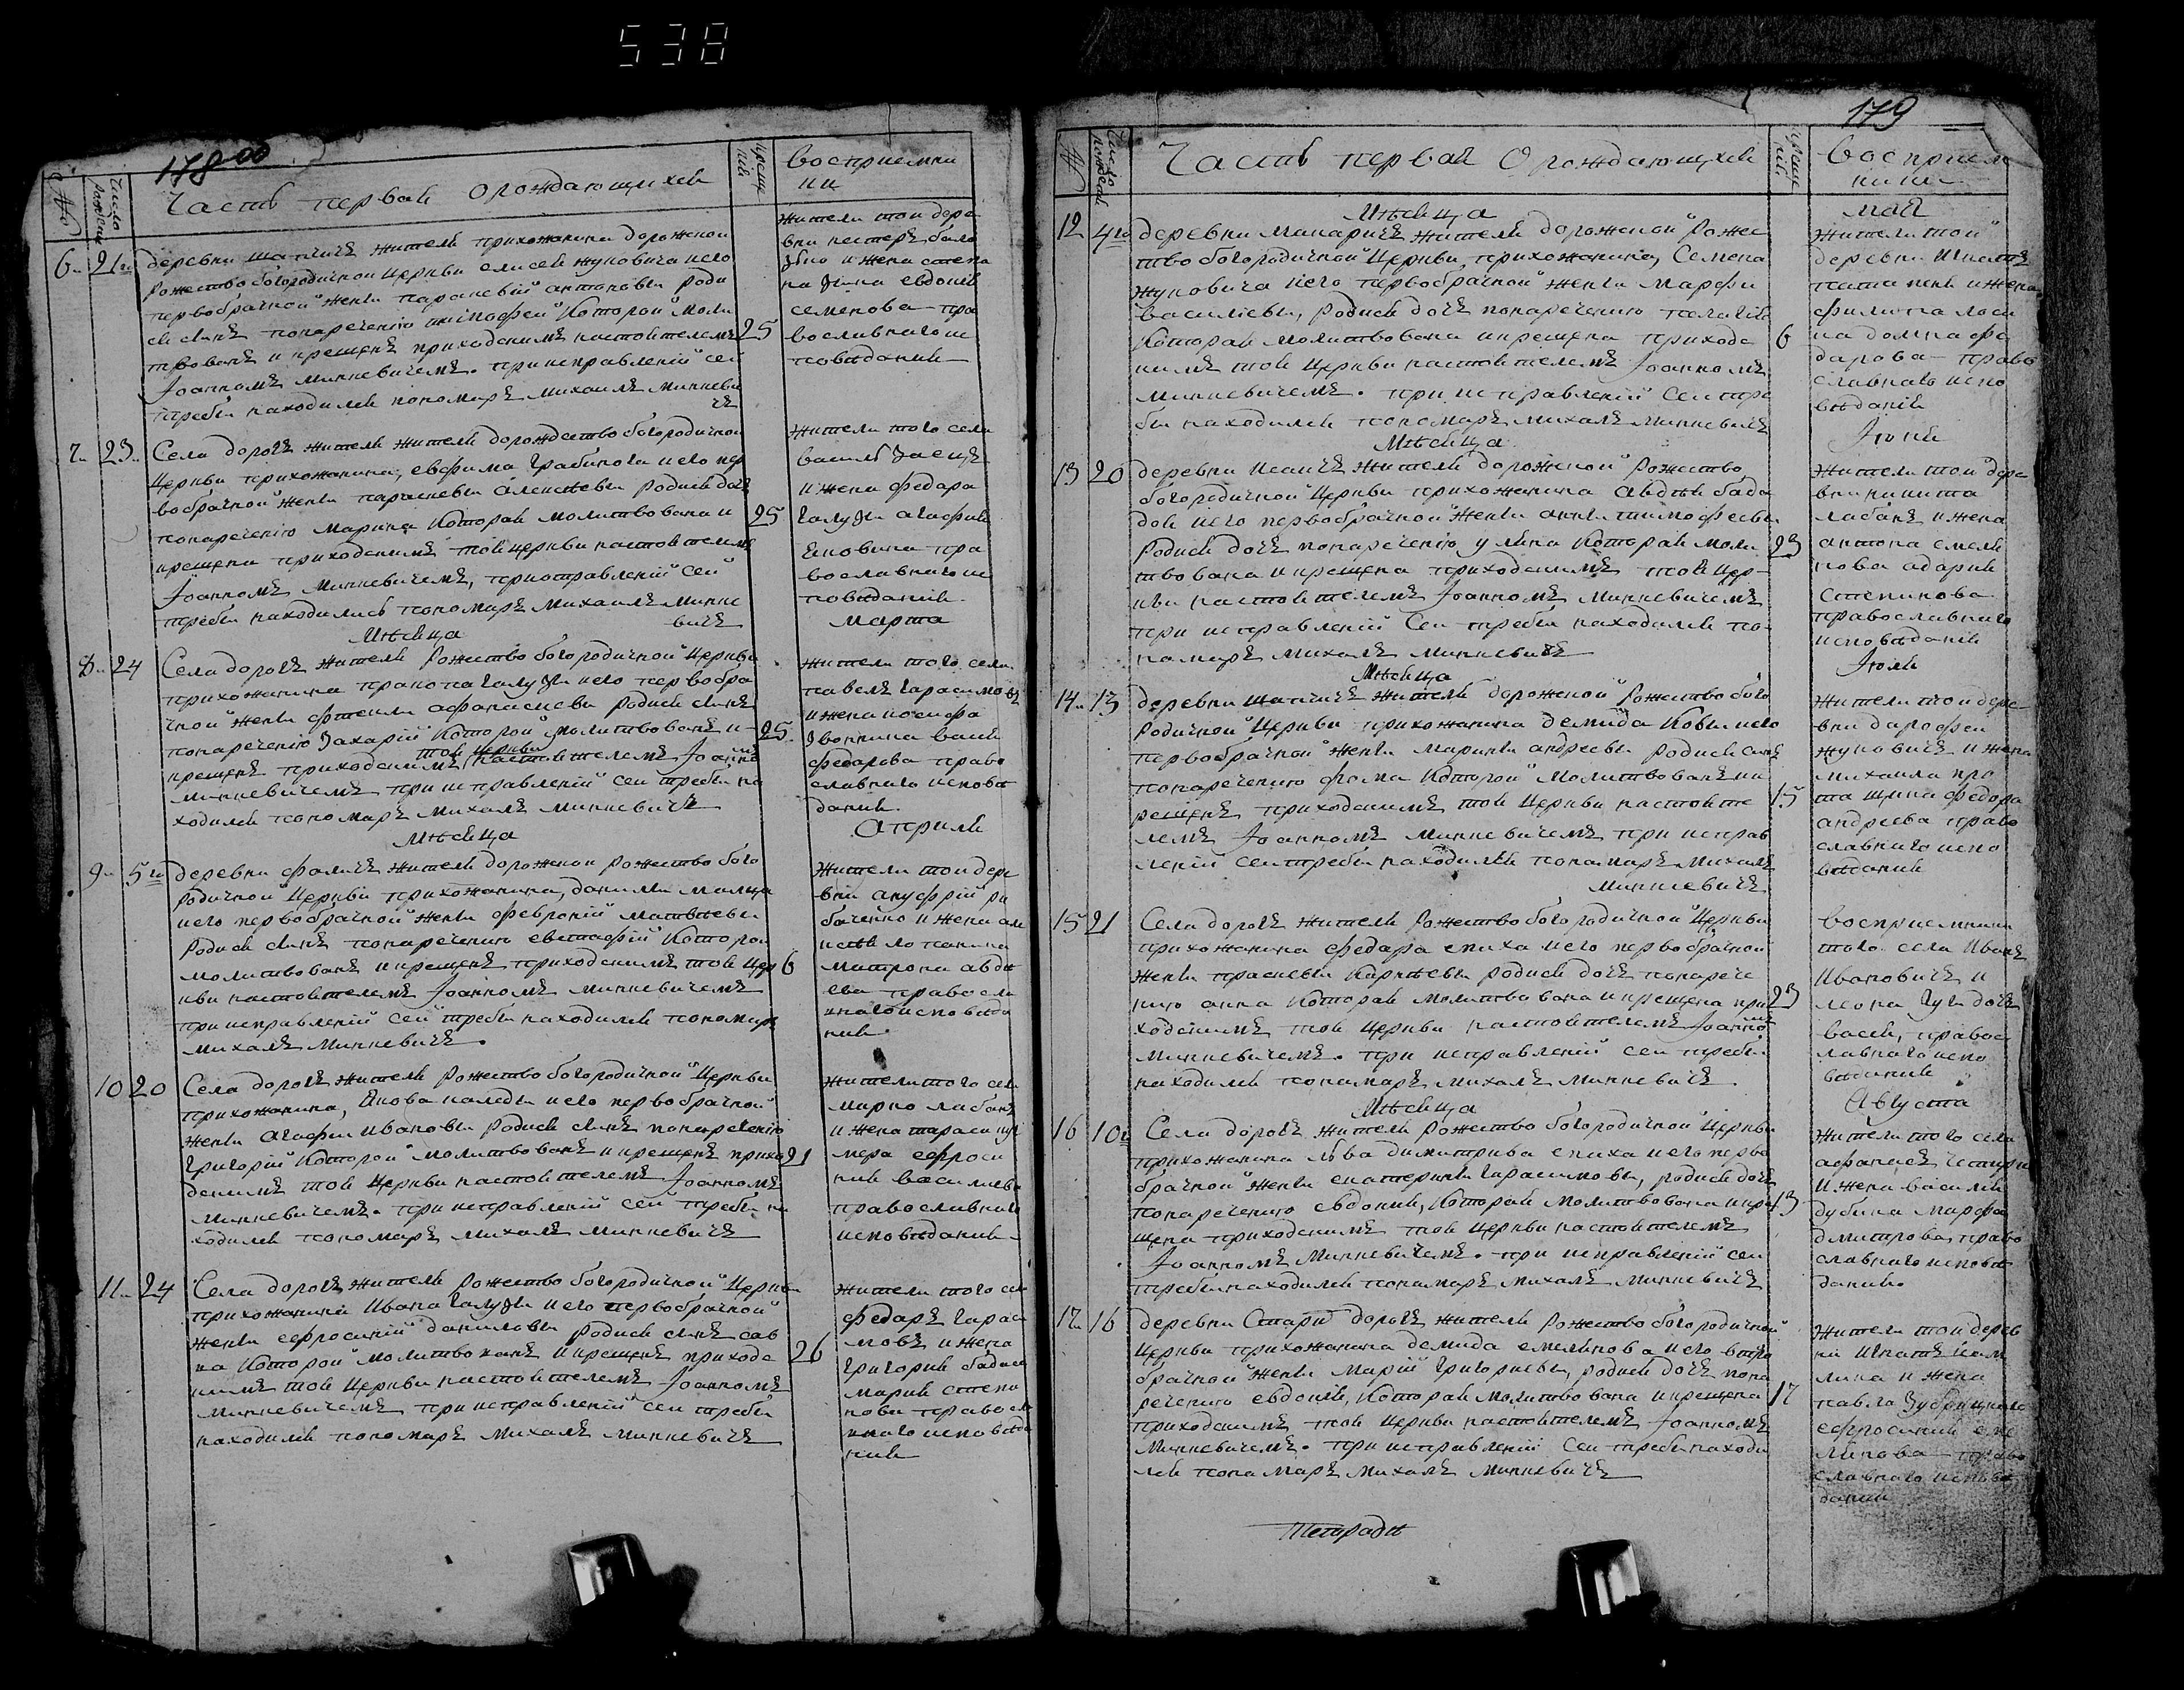 538
178
№
Число рождени
Часть первая о рождающихся
креще ния
восприемни
ки
6 21 деревни шапчичъ жителя прихожанина дорожской
Рожество богородичной Церкви елисея жуковича и его
первобрачной жены параскевiи антоновы роди
ся Сынъ понареченiю тимофей Которой Моли
твованъ и крещенъ приходскимъ настоятелемъ 25
Iоанномъ Минкевичемъ. при исправленiи сей
требы находился пономаръ михаилъ минкеви
чъ
жители той дере
вни нестеръ
и жена степа
на евдокiя
семенова пра
вославнаго ис
поведанiя
7 23 Села дорогъ жителя жителя дорождество богородичной
Церкви прихожанина, евфима грабинова и его пер
вобрачной жены параскевы алексеевы родися дочъ
понареченiю марина Которая молитвована и 25
крещена приходскимъ той церкви настоятелемъ
Iоанномъ Минкевичемъ, приотправленiи сей
требы находилась пономаръ михаилъ минке
вичъ
жители того села
василь заецъ
и жена федара
галузы агафия
Яковина пра
вославнаго ис
поведанiя
Мѣсяца
марта
8 24 Села дорогъ жителя Рожество богородичной Церкви
прихожанина прокопа галузы и его первобра
чной жены фтеклы афанасиевы родися Сынъ
понареченiю Захарiй Которой молитвованъ и 25
той Церкви
крещенъ приходскимъ настоятелемъ Iоанно мъ
минкевичемъ при исправленiи сей требы на
ходился пономаръ михалъ минкевичъ
жители того села
павелъ гарасимовъ
и жена иосифа
Звонкина васи
федарова право
славнаго испове
данiя
Мѣсяца
Априля
9 5 деревни фаличъ жителя дорожской рожество бого
родичной Церкви прихожанина, данилы малца
и его первобрачной жены февронiи матвѣевы
родися Сынъ понареченiю евстафiй Которой
молитвованъ и крещенъ приходскимъ той Цер 6
кви настоятелемъ Iоанномъ Минкевичемъ
при исправленiи сей требы находился пономаръ
михалъ Минкевичъ.
жители той дере
вни ануфрiй ры
баченко и жена але
ксѣя лопанина
матрона авдѣ
ева правосла
внаго исповѣда
нiя
10 20 Села дорогъ жителя Рожество богородичной Церкви
прихожанина, Якова каледы и его первобрачной
жены агафии Ивановы родися Сынъ понаречению
григорiй Которой молитвованъ и крещенъ прихо 21
дскимъ той Церкви настоятелемъ Iоанномъ
Минкевичемъ. при исправленiи сей требы на
ходился пономаръ михалъ минкевичъ
жители того села
марко лабанъ
и жена тараса
мера ефроси
ния василева
православнаго
исповѣданiя
11 24 Села дорогъ жителя Рожество богородичной Церкви
прихожанина Ивана галузы и его первобрачной
жены ефросинiи даниловы родися сынъ сав
ка Которой молитвованъ и крещенъ приход 26
кимъ той Церкви настоятелемъ Iоанномъ
минкевичемъ при исправленiи сей требы
находился пономаръ михалъ минкевичъ
жители того села
федаръ гараси
мовъ и жена
григория бадиля
мария степа
нова правосла
внаго исповѣда
нiя
179
№
Число рождени
Часть первая О рождающихся
креще ния
восприем
ники
Мѣсяца
мая
12 4 деревни макаричъ жителя дорожской Рожес
тво богородичной Церкви прихожанина, Семена
жуковича и его первобрачной жены марфы
василиевы, родися дочъ понареченiю пелагiя
Которая молитвована и крещена приходс 6
кимъ той Церкви настоятелемъ Iоанномъ
минкевичемъ. при исправленiи сей тре
бы находился пономаръ михалъ минкевичъ
жители той
деревни Игнатъ
и жена
филипа лоси
на домна фе
дарова право
славнаго испо
вѣданiя
Мѣсяца
Iюня
13 20 деревни исаичъ жителя дорожской Рожество
богородичной Церкви прихожанина авдѣя бада
дон и его первобрачной жены анны тимофеевы
родися дочъ понареченiю улина Которая моли 23
твована и крещена приходскимъ той Цер
кви настоятелемъ Iоанномъ минкевичемъ
при исправленiи сей требы находился по
намаръ михалъ минкевичъ
жители той дере
вни никита
лабанъ и жена
антона емеля
нова адария
Степанова
православнаго
исповѣданiя
Мѣсяца
Iюля
14 13 деревни шапчичъ жителя дорожской Рожество бого
родичной Церкви прихожанина демида Ковы и его
первобрачной жены марины андреевы родися сынъ
понареченiю фома Которой молитвованъ и к
рещенъ приходскимъ той Церкви настояте 15
лемъ Iоанномъ минкевичемъ при исправ
ленiи сей требы находился понамаръ михалъ
минкевичъ
жители той дере
вни дарофей
жуковичъ и жена
михаила про
та щина федора
андреева право
славнаго испо
вѣданiя
15 21 Села дорогъ жителя Рожество богородичной Церкви
прихожанина федара епиха и его первобрачной
жены праскевы Карпѣевы родися дочъ понарече
нию анна Которая молитвована и крещена при 23
ходскимъ той Церкви настоятелемъ Iоанно мъ
минкевичемъ. при исправленiи сей требы
находился понамаръ михалъ минкевичъ
восприемники
того села Иванъ
Ивановичъ и
леона гуза дочъ
васи, правос
лавнаго испо
вѣданiя
Мѣсяца
Августа
16 10 Села дорогъ жителя Рожество богородичной Церкви
прихожанина льва димитрива епиха и его перво
брачной жены екатерины гарасимовы, родися дочъ
понареченiю евдокия, Которая молитвована и кре 13
щена приходскимъ той Церкви настоятелемъ
Iоанномъ минкевичемъ. при исправленiи сей
требы находился понамаръ михалъ минкевичъ
жители того села
афанасъ
и жена василия
дубина марфа
дмитрова право
славнаго исповѣ
данiя
17 16 деревни Стары дорогъ жителя Рожество богородичной
Церкви прихожанина демида емелянова и его втро
брачной жены марiи григориевы, родися дочъ пона
речению евдокия, Которая молитвована и крещена 17
приходскимъ той Церкви настоятелемъ Iоанномъ
минкевичемъ. при исправленiи сей требы находи
лся понамаръ михалъ минкевичъ
жители той дерев
ни Игнатъ
и жена
павла
ефросиния еме
лянова право
славнаго исповѣ
данiя
Тетрадь